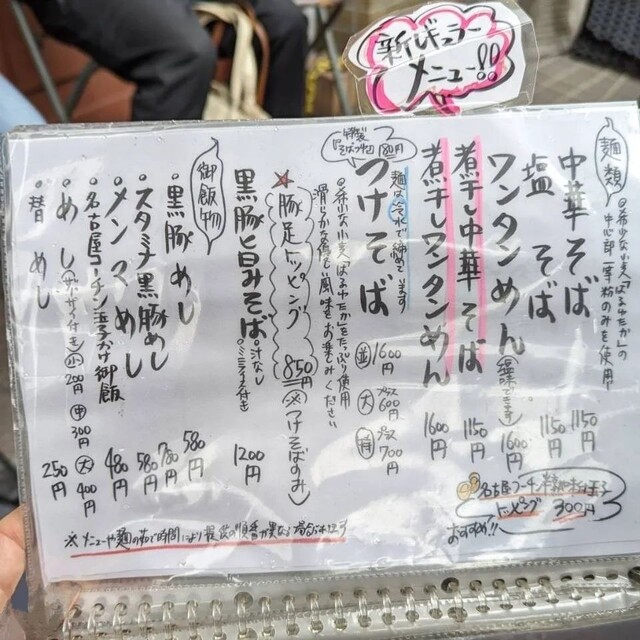 新レギュラー
メニュー!!
麺類
◎希少な小麦「はるゆたか」の
中心部一等粉のみを使用!
中華そば 1150円
塩そば 1150円
ワンタンめん(塩味できます) 1600円
煮干し中華そば 1150円
煮干しワンタンめん 1600円
つけそば
麺は冷水で〆ます
◎希少な小麦"はるゆたか"をたっぷり使用
滑らかな食感と風味をお楽しみください
並 1600円
大 プラス600円
特 プラス700円
★豚足トッピング 850円(※つけそばのみ)
黒豚旨みそば 汁なし
ミニライス付き
1200円
御飯物
・黒豚めし 580円
・スタミナ黒豚めし 780円
・メンマめし 580円
・名古屋コーチン玉子かけ御飯 480円
・めし
小 200円
中 300円
大 400円
・替めし 250円
名古屋コーチン
トッピング 300円
おすすめ!!
※メニューや麺のゆで時間により提供の順番が異なる場合があります